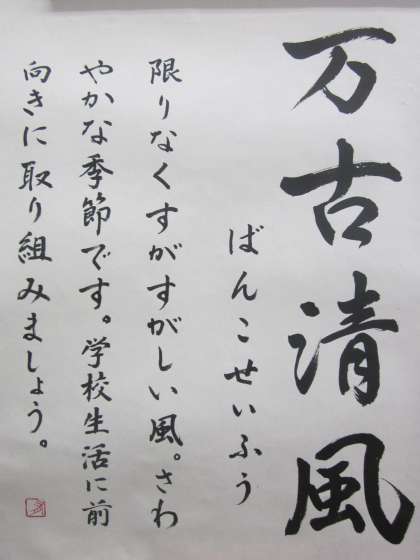 万古清風
ばんこせいふう
限りなくすがすがしい風。さわ
やかな季節です。学校生活に前
向きに取り組みましょう。